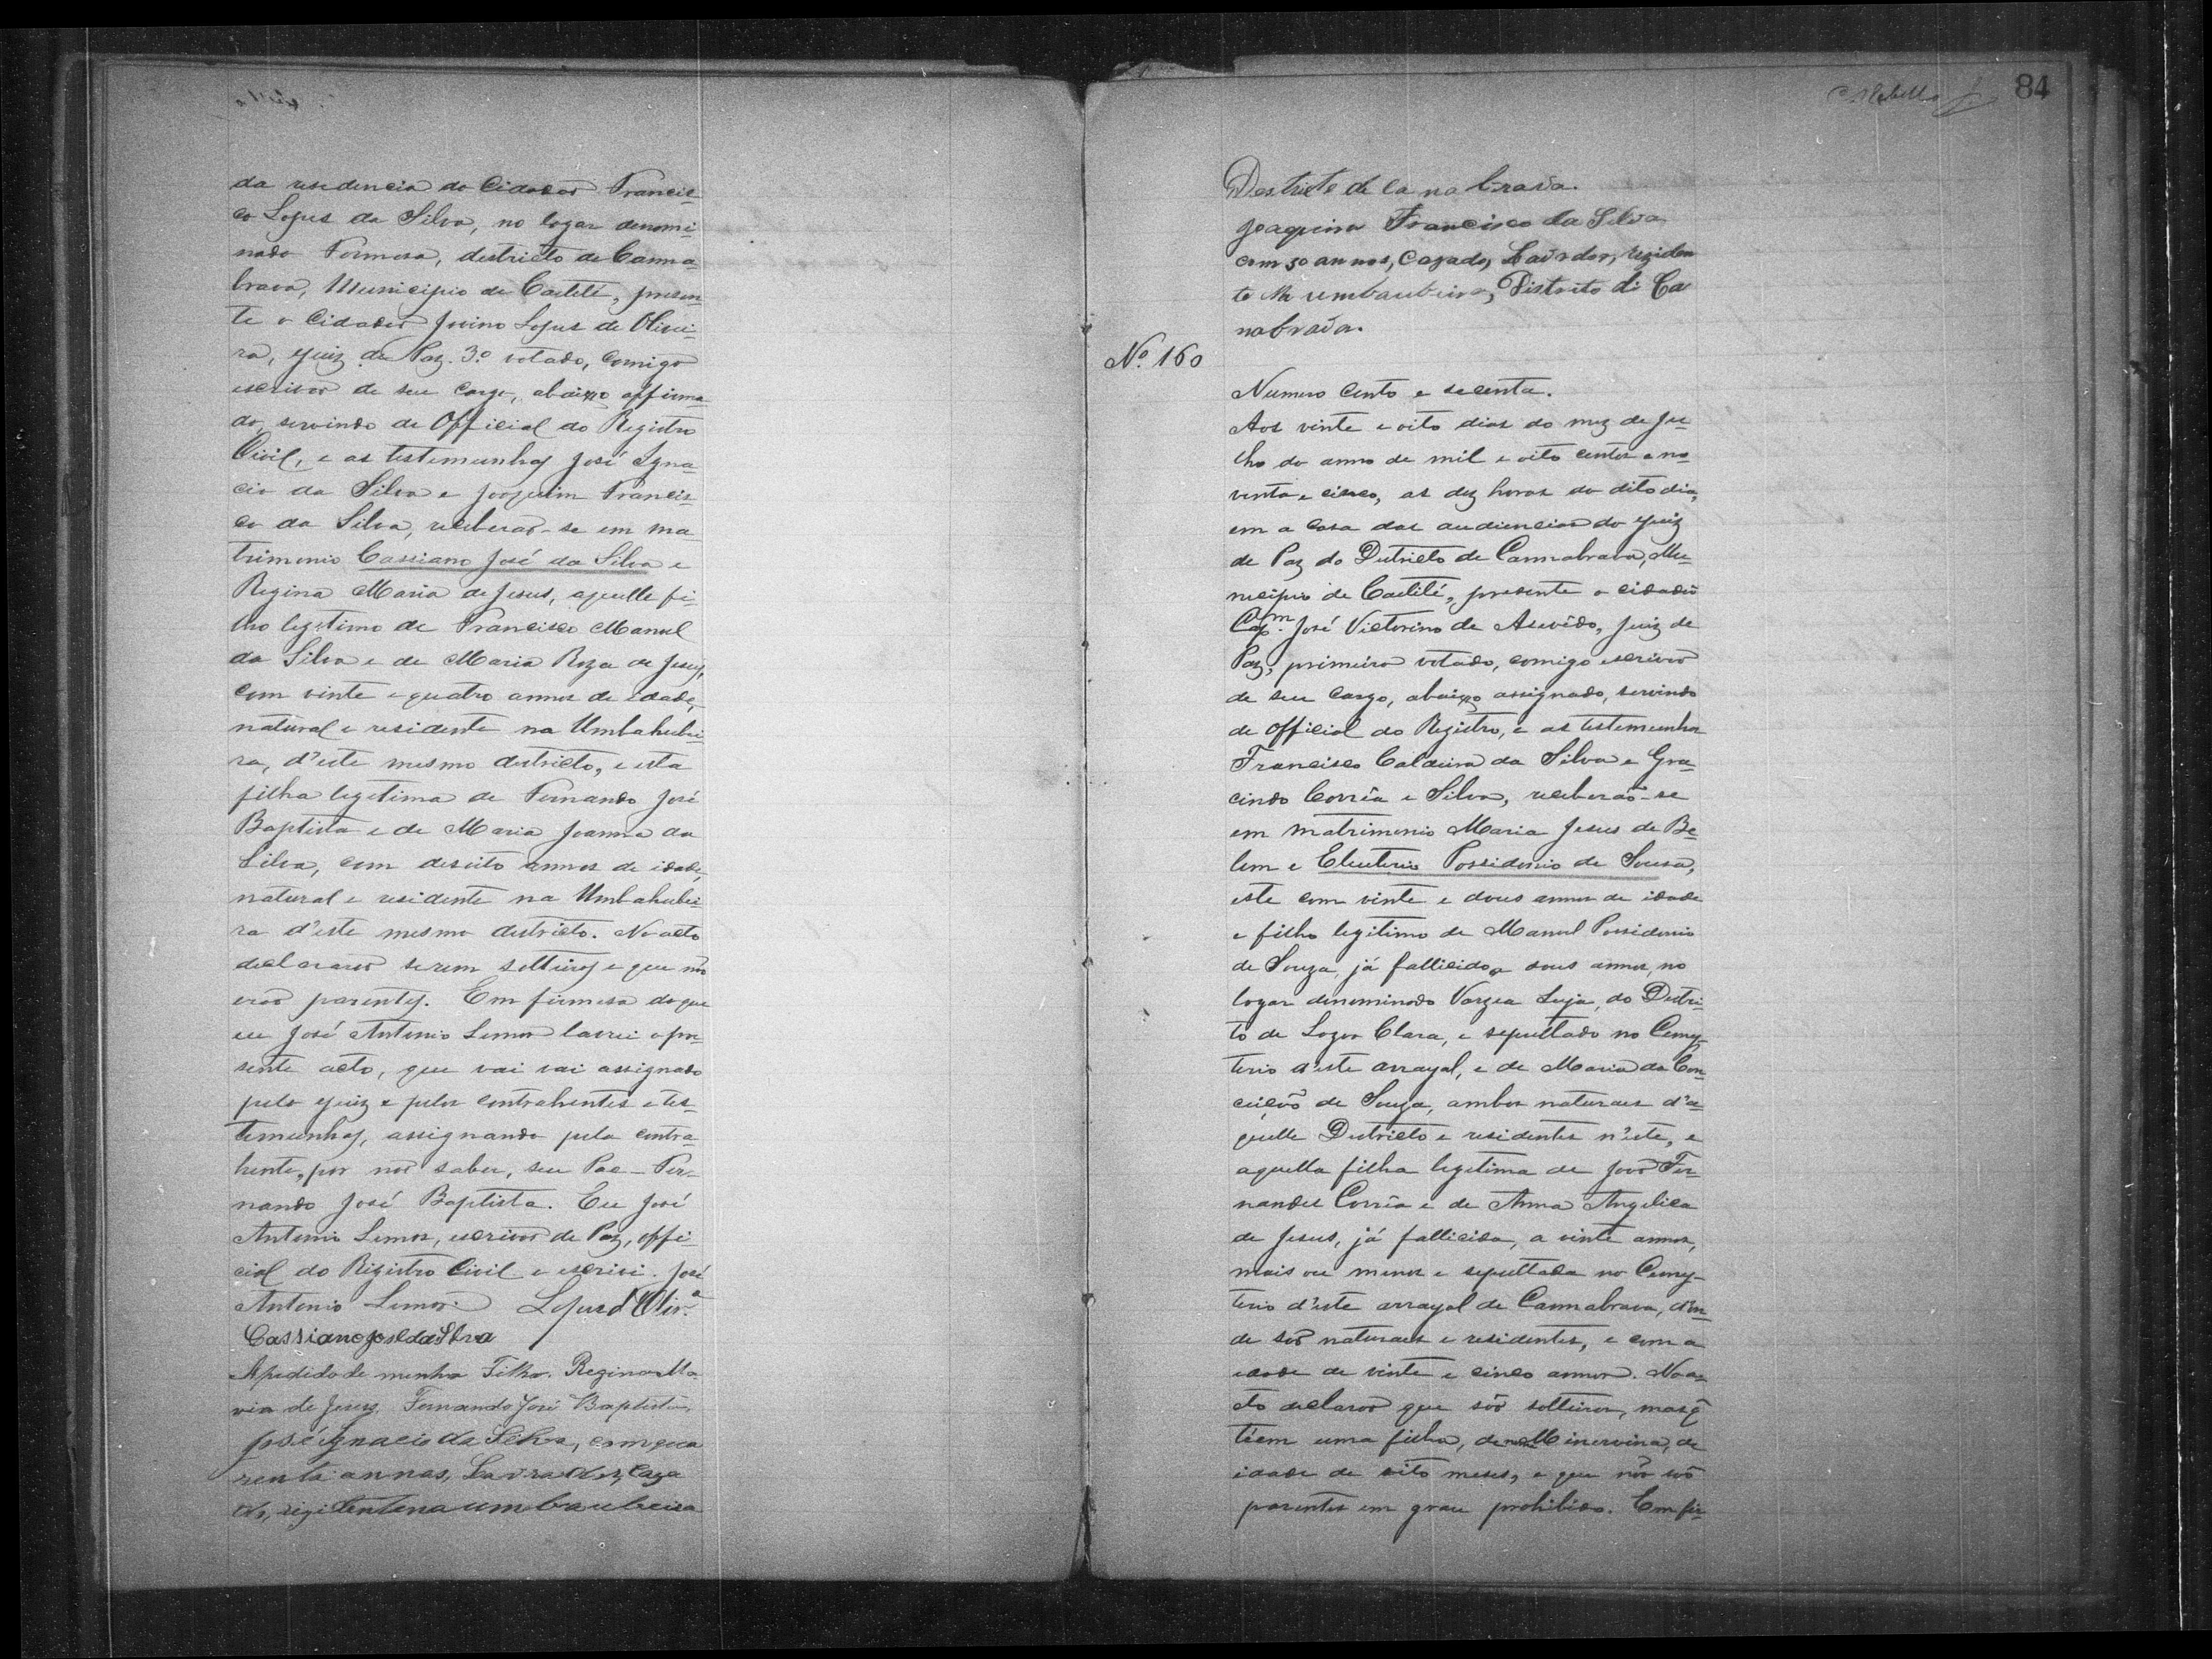 da residencia do Cidadão Francis-
co Lopes da Silva, no logar denomi-
nado Formosa, destricto de Canna-
brava, Municipio de Caeteté, presen-
te o Cidadão Jovino Lopes de Olivei-
ra, Juiz de Paz 3.º votado, comigo
escrivão de seu cargo, abaixo affirma-
do, servindo de Official do Registro
Civil, e as testemunhas José Igna-
cio da Silva e Joaquim Francis-
co da Silva, receberão-se em ma-
trimonio Cassiano José da Silva e
Regina Maria de Jesus, aquelle fi-
lho legitimo de Francisco Manuel
da Silva e de Maria Roza de Jesus,
com vinte e quatro annos de idade,
natural e residente na Umbahubei-
ra, d'este mesmo destricto, e esta
filha legitima de Fernando José
Baptista e de Maria Joanna da
Silva, com desoito annos de idade,
natural e residente na Umbahubei-
ra d'este mesmo destricto. No acto
declararão serem solteiros e que não
erão parentes. Em firmesa do que
eu José Antonio Lemos lavrei o pre-
sente acto, que vai vai assignado
pelo Juiz e pelos contrahentes e tes-
temunhas, assignando pela contra-
hente, por não saber, seu Pae - Fer-
nando José Baptista. Eu José
Antonio Lemos, escrivão de Paz, offi-
cial do Registro Civil e escrivi. José
Antonio Lemos. Lopes d'Oliv.ª
Cassiano Jose da Silva
Apedido de minha Filha. Regina Ma
ria de Jesus, Fernando José Baptista.
José Ignacio da Silva, com coca
renta annas, Lavrador, Caza
do, rezidentena umbaubeira
84
Destricto de Cana brava.
Joaquim Francisco da Silva
com 50 annos, Cazado, Lavrador, reziden
te Na umbaubeira, Distrito di Ca
nabrava.
Nº. 160
Numero cento e secenta.
Aos vinte e oito dias do mez de Ju-
lho do anno de mil e oito centos e no-
venta e cinco, as dez horas do dito dia,
em a casa das audiencias do Juiz
de Paz do Destricto de Cannabrava, Mu-
nicipio de Caetité, presente o cidadão
Cap.m José Victorino de Asevêdo, Juiz de
Paz, primeiro votado, comigo escrivão
de seu cargo, abaixo assignado, servindo
de Official do Registro, e as testemunhas
Francisco Caldeira da Silva e Gra-
cindo Corrêa e Silva, receberão-se
em matrimonio Maria Jesus de Be-
lem e Eleuterio Possidonio de Sousa,
este com vinte e dous annos de idade
e filho legitimo de Manuel Possidonio
de Souza, já fallicido a dous annos, no
logar denominado Vargea Suja, do Destri-
to de Lagoa Clara, e sepultado no Cemy-
terio d'este arrayal, e de Maria da Con-
ceição de Souza, ambos naturaes d'a-
quelle Destricto e residentes n'este, e
aquella filha legitima de João Fer-
nandes Corrêa e de Anna Angelica
de Jesus, já fallicida, a vinte annos,
mais ou menos e sepultada no Cemy-
terio d'este arrayal de Cannabrava, d'on-
de são naturaes e residentes, e com a
idade de vinte e cinco annos. No a-
cto declarão que são solteiros, mas q̃
têem uma filha, de nome Minervina, de
idade de oito meses, e que não são
parentes em grau prohibido. Em fir-